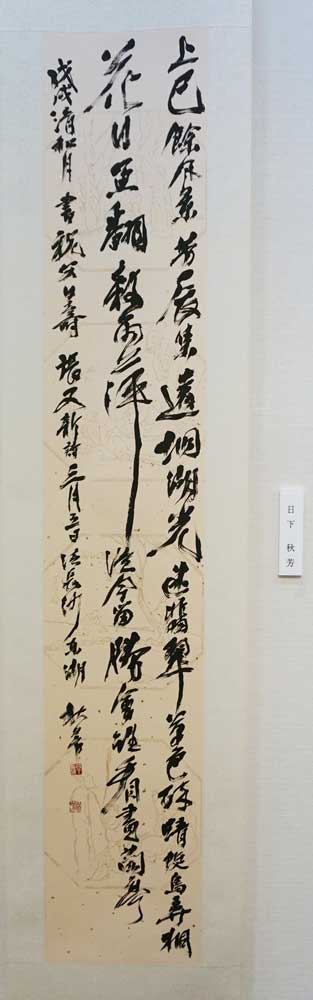 上巳餘風景芳辰集遠坰湖光迷翡翠草色醉蜻蜓鳥弄桐
花日魚翻穀雨萍從今留勝會誰看畫蘭亭
戊戌清和月 書祝 壽 張又新詩三月五日泛長沙東湖 秋芳
日下 秋芳